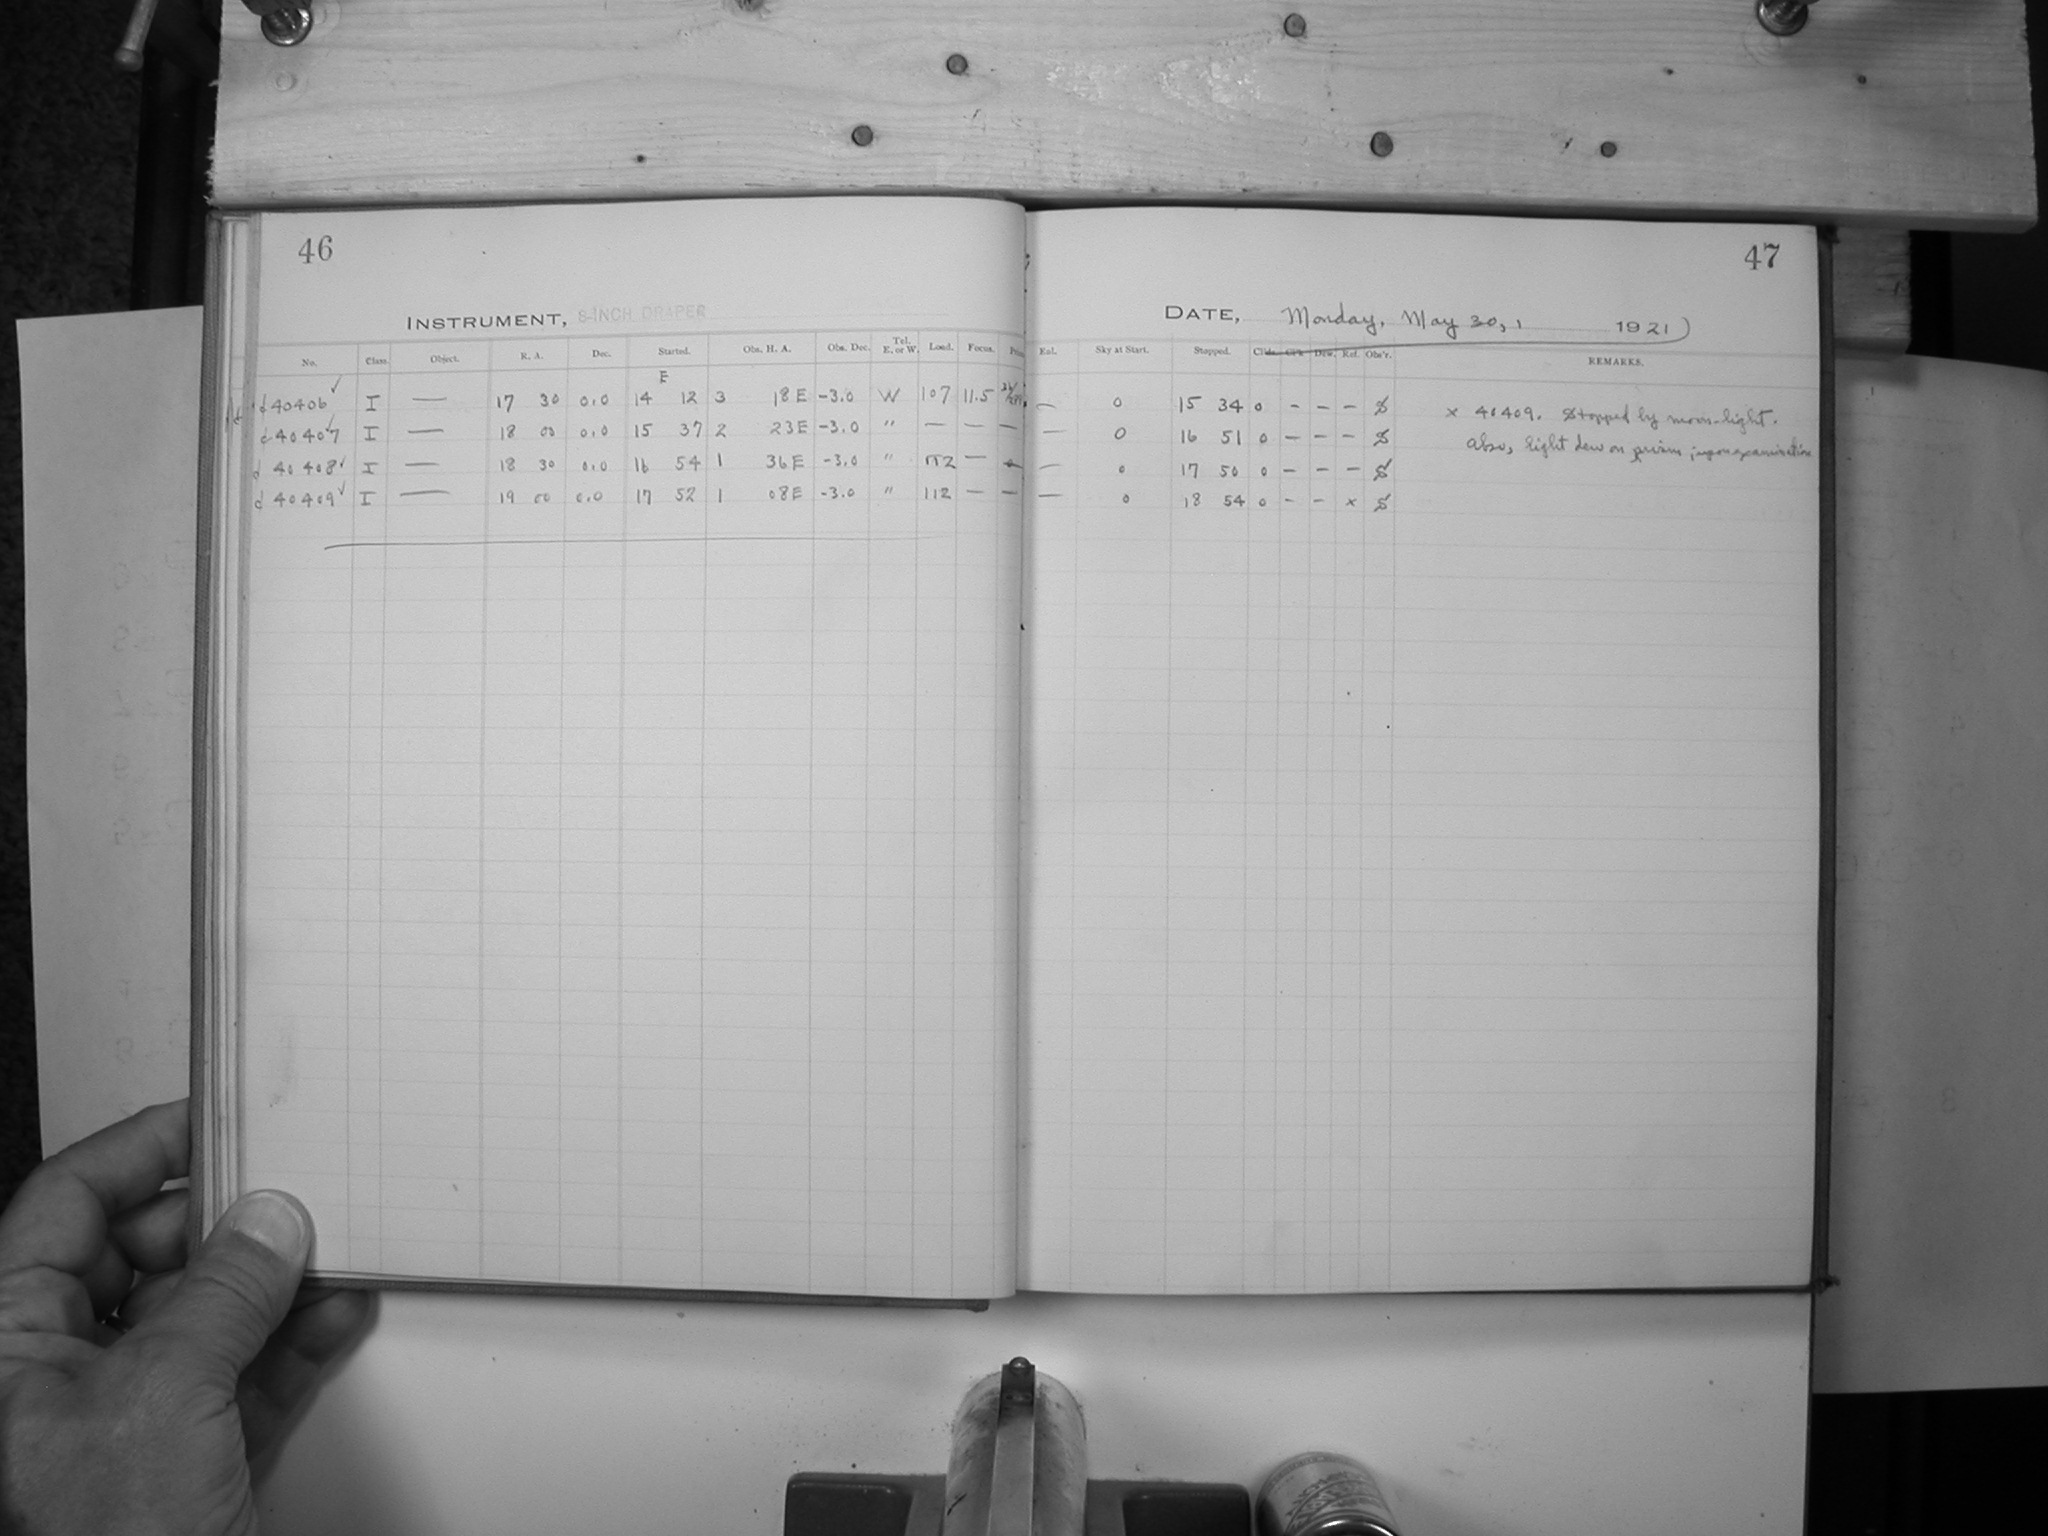 46
INSTRUMENT, 8-INCH DRAPER
No. Class. Object. R. A. Dec. Started. Obs. H. A. Obs. Dec. Tel. E. or W. Load. Focus.
E
d 40406 ✓ I — 17 30 0.0 14 12 3 18 E -3.0 W 107 11.5
d 40407 ✓ I — 18 00 0.0 15 37 2 23 E -3.0 " — — —
d 40408 ✓ I — 18 30 0.0 16 54 1 36 E -3.0 " 112 — —
d 40409 ✓ I — 19 00 0.0 17 52 1 08 E -3.0 " 112 — —
47
DATE, Monday, May 30, 1 1921)
Sky at Start. Stopped. Dew. Ref. Obs'r. REMARKS.
— 0 15 34 0 - - - S
— 0 16 51 0 - - - S
— 0 17 50 0 - - - S
— 0 18 54 0 - - x S
x 40409. Stopped by moon-light.
Also, light dew on prism; upon examination